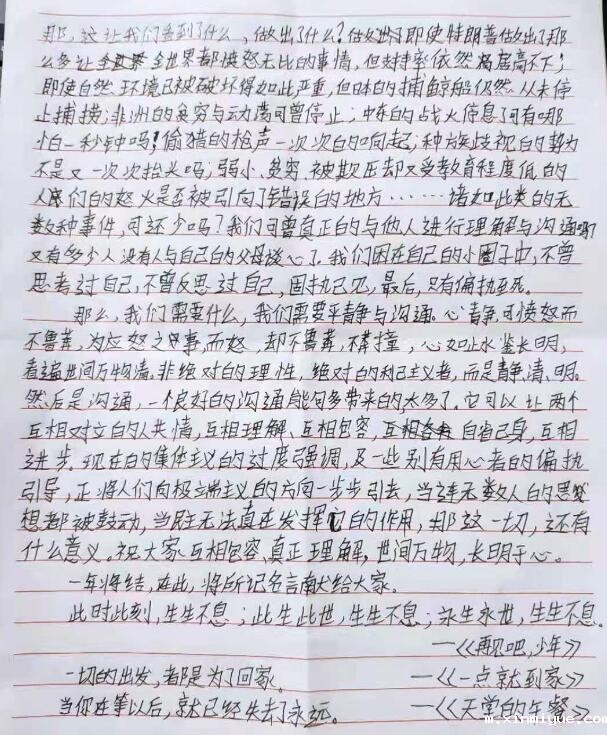 那,这让我们看到了什么,做出了什么?即使特朗普做出了那
么多让全世界都愤怒无比的事情,但支持率依然居高不下;
即使自然环境已被破坏得如此严重,但日本的捕鲸船仍然从未停
止捕捞;非洲的贫穷与动荡可曾停止;中东的战火停息了可有哪
怕一秒钟吗?偷猎的枪声一次次的响起;种族歧视的
不是又一次次抬头吗;弱小、贫穷、被欺压却又受教育程度低的
人们的怒火是否被引向了错误的地方……诸如此类的无
数种事件,可还少吗?我们可曾真正的与他人进行理解与沟通吗?
又有多少人没有人与自己的父母谈心了,我们困在自己的小圈子中,不曾
思考过自己,不曾反思过自己,固执己见,最后,只有偏执至死。
那么,我们需要什么,我们需要平静与沟通。心静,可愤怒而
不鲁莽,为应怒之事,而怒,却不鲁莽,不莽撞,心如止水鉴长明,
看遍世间万物清。非绝对的理性,绝对的利己主义者,而是静、清、明。
然后是沟通,一个良好的沟通能够带来的太多了。它可以让两个
互相对立的人共情,互相理解、互相包容,自省己身,互相
进步。现在的集体主义的过度强调,及一些别有用心者的偏执
引导,正将人们向极端主义的方向一步步引去,当连无数人的思
想都被鼓动,当民主无法真正发挥它的作用,那这一切,还有
什么意义。祝大家互相包容、真正理解,世间万物,长明于心。
一年将结,在此,将所记名言献给大家。
此时此刻,生生不息;此生此世,生生不息;永生永世,生生不息。
—《再见吧,少年》
一切的出发,都是为了回家。 —《一点就到家》
当你在等以后,就已经失去了永远。 —《天堂的午餐》
m.xinmiyue.com